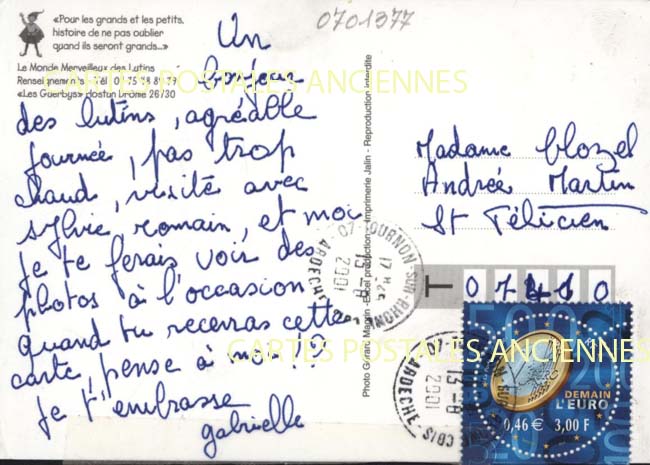 0701377
«Pour les grands et les petits,
histoire de ne pas oublier
quand ils seront grands...»
Le Monde Merveilleux des Lutins
Renseignements : Tél. 04 75 48 89 79
«Les Guerbys» Hostun Drôme 26730
CARTES POSTALES ANCIENNES
Un
bonjour
des lutins, agréable
journée, pas trop
chaud, visite avec
sylvie romain, et moi
Je te ferais voir des
photos à l'occasion
quand tu receuras cette
carte, pense à moi !!!
Je t'embrasse
gabrielle
Photo Gérard Martin - Excel production - Imprimerie Jalin - Reproduction interdite
Madame Clozel
Andrée Martin
St Félicien
T 07410
07 TOURNON-SUR-RHONE
17 H
13 -8
2001
ARDECHE
CARTES POSTALES ANCIENNES
13 -8
2001
ARDECHE
DEMAIN
L'EURO
0,46 € 3,00 F